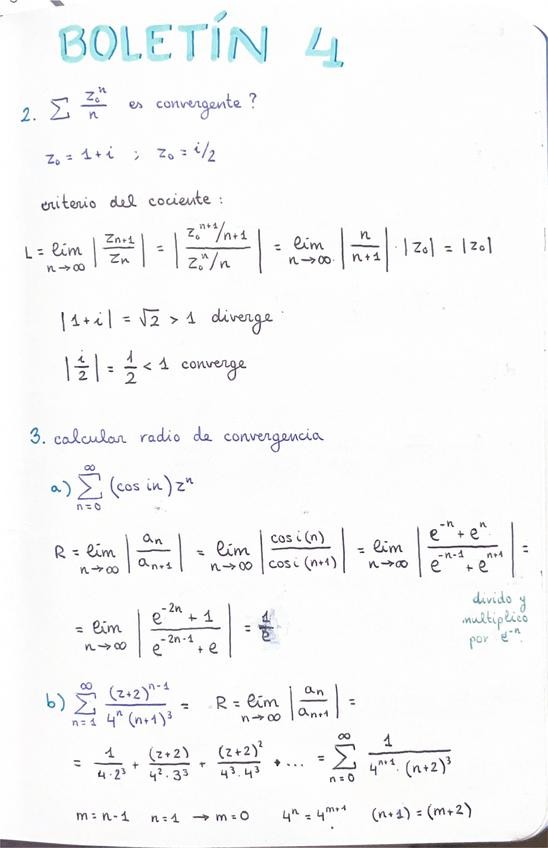 BOLETÍN 4
2. ∑ z₀ⁿ/n es convergente ?
z₀ = 1+i ; z₀ = i/2
criterio del cociente :
L = lím n→∞ |zn+1/zn| = |(z₀ⁿ⁺¹/n+1)/(z₀ⁿ/n)| = lím n→∞ |n/(n+1)| · |z₀| = |z₀|
|1+i| = √2 > 1 diverge
|i/2| = 1/2 < 1 converge
3. calcular radio de convergencia
a) ∑ n=0 ∞ (cos in) zⁿ
R = lím n→∞ |an/an+1| = lím n→∞ |cos i(n)/cos i(n+1)| = lím n→∞ |(e⁻ⁿ + eⁿ)/(e⁻ⁿ⁻¹ + eⁿ⁺¹)| =
divido y
multiplico
por e⁻ⁿ
= lím n→∞ |(e⁻²ⁿ + 1)/(e⁻²ⁿ⁻¹ + e)| = 1/e
b) ∑ n=1 ∞ (z+2)ⁿ⁻¹/(4ⁿ (n+1)³) = R = lím n→∞ |an/an+1| =
= 1/(4·2³) + (z+2)/(4²·3³) + (z+2)²/(4³·4³) + ... = ∑ n=0 ∞ 1/(4ⁿ⁺¹ · (n+2)³)
m = n-1 n=1 → m=0 4ⁿ = 4ᵐ⁺¹ (n+1) = (m+2)